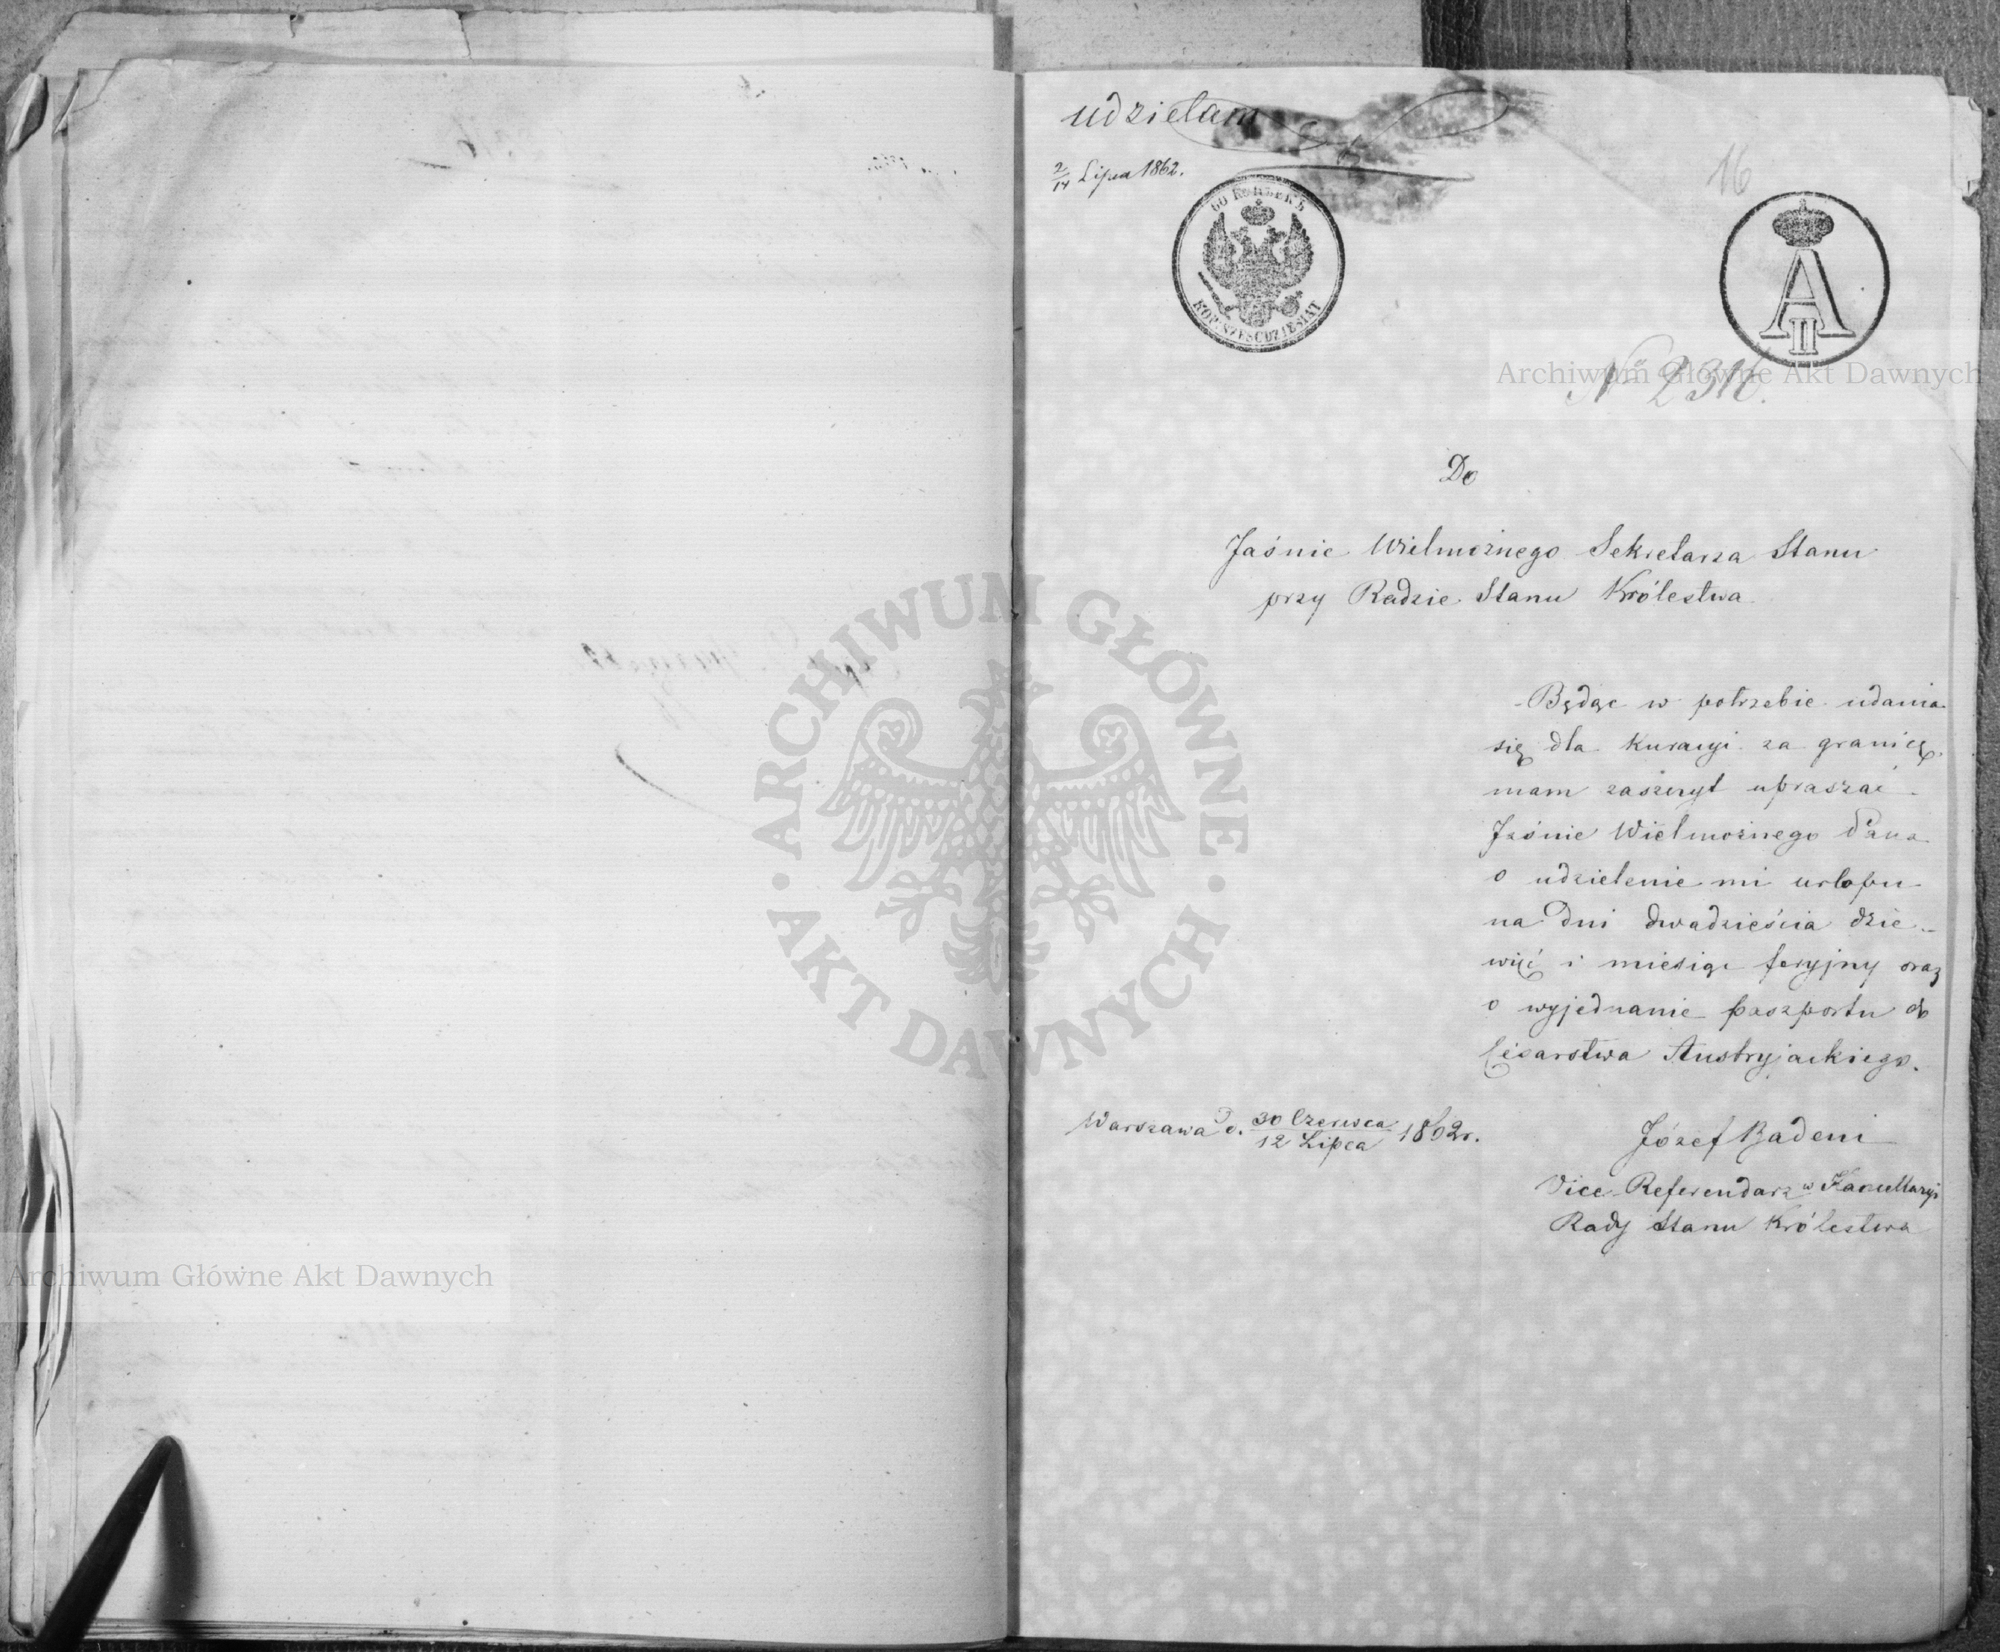 udzielam
2/14 Lipca 1862.
16
60 КОПѢЕКЪ
KOP: SZEŚĆDZIESIĄT
A
II
Archiwum Główne Akt Dawnych
N° 2316.
Do
Jaśnie Wielmożnego Sekretarza Stanu
przy Radzie Stanu Królestwa
Będąc w potrzebie udania
się dla kuracyi za granicę
mam zaszczyt upraszać
Jaśnie Wielmożnego Pana
o udzielenie mi urlopu
na dni dwadzieścia dzie-
więć i miesiąc feryjny oraz
o wyjednanie paszportu do
Cesarstwa Austryjackiego.
Warszawa d. 30 Czerwca/12 Lipca 1862 r.
Józef Badeni
Vice-Referendarz w Kancellaryi
Rady Stanu Królestwa
ARCHIWUM GŁÓWNE
AKT DAWNYCH
Archiwum Główne Akt Dawnych